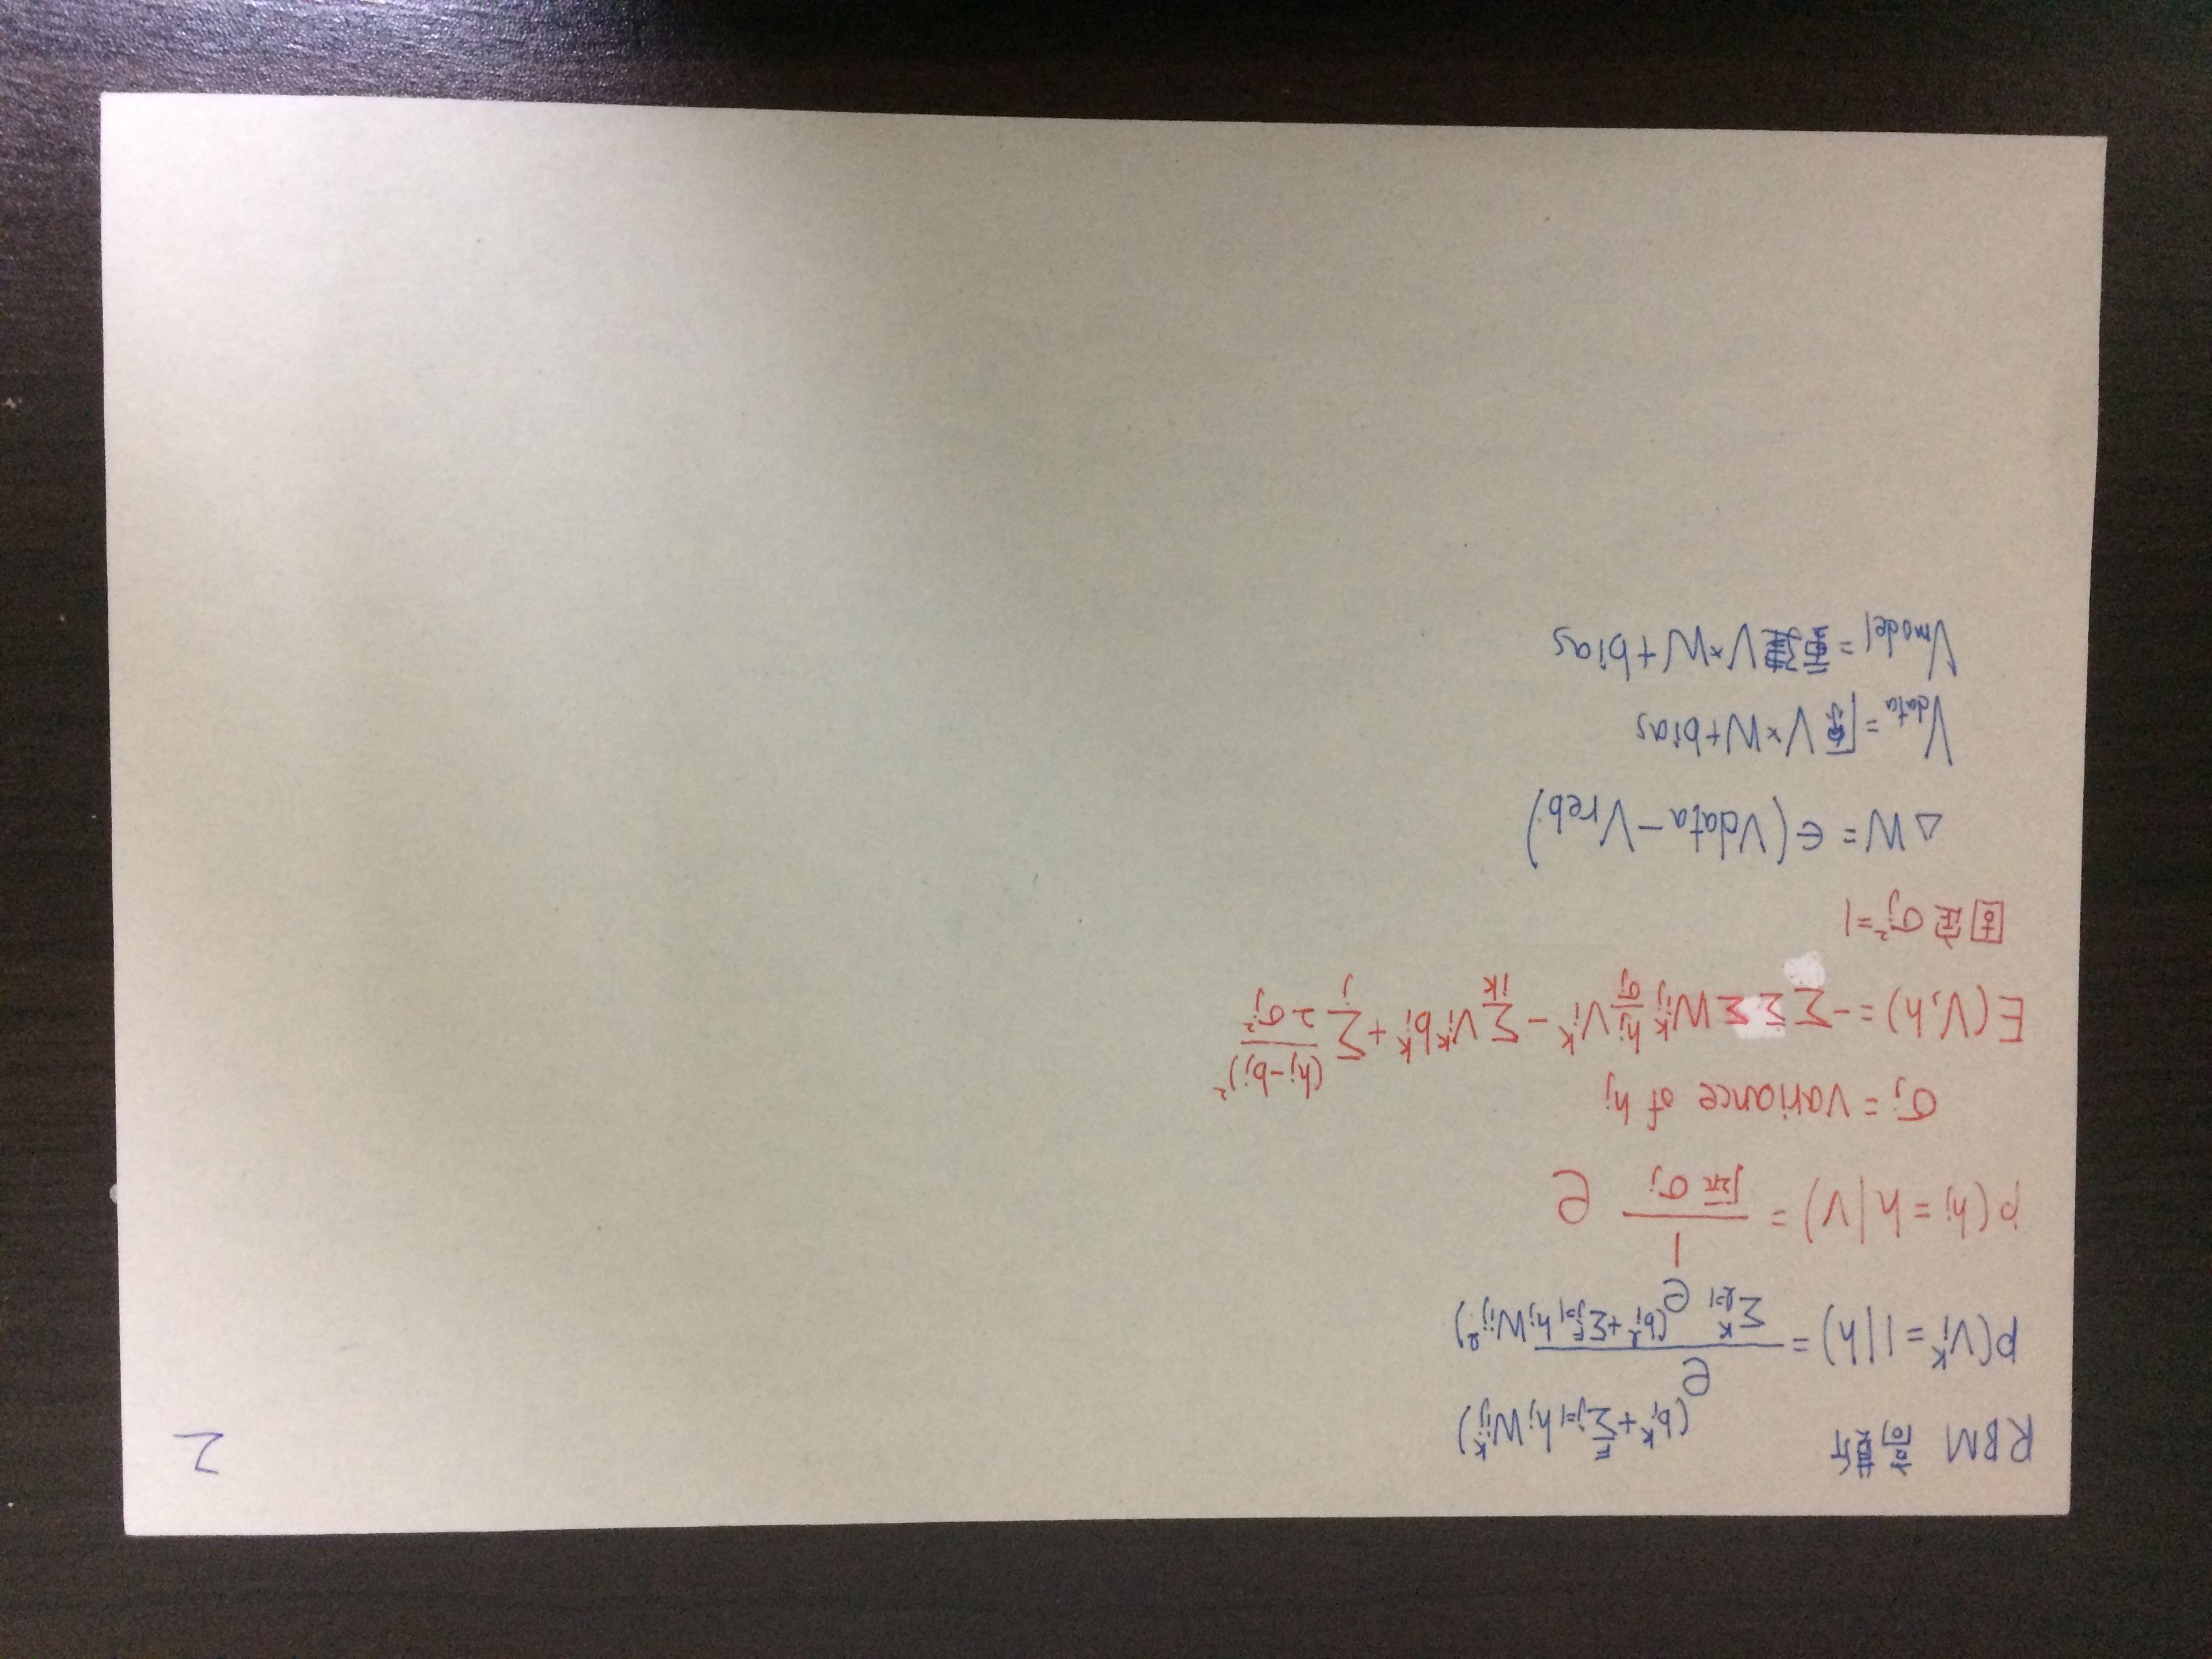 RBM 高斯
2
p(v_i^k = 1 | h) = e^(b_i^k + Σ_{j=1}^F h_j W_ij^k) / Σ_{l=1}^K e^(b_i^l + Σ_{j=1}^F h_j W_ij^l)
p(h_j = h | V) = 1 / (√2π σ_j) e
σ_j = variance of h_j
E(V, h) = -Σ Σ Σ W_ij^k h_j/σ_j V_i^k - Σ_ik V_i^k b_i^k + Σ_j (h_j - b_j)^2 / 2σ_j^2
固定 σ_j^2 = 1
△W = ∈(Vdata - V_reb)
V_data = 原 V × W + bias
V_model = 重建 V × W + bias